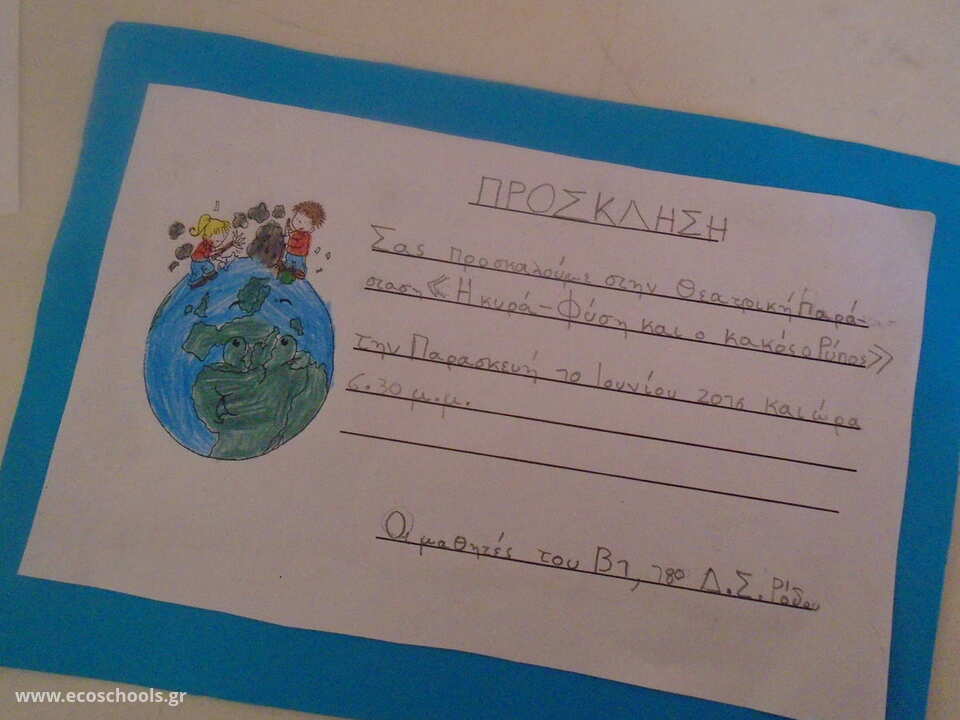 ΠΡΟΣΚΛΗΣΗ
Σας προσκαλούμε στην Θεατρική Παρά-
σταση «Η κυρά-Φύση και ο κακός ο Ρύπος»
την Παρασκευή 10 Ιουνίου 2016 και ώρα
6.30 μ.μ.
Οι μαθητές του Β1, 18ο Δ.Σ. Ρόδου
www.ecoschools.gr